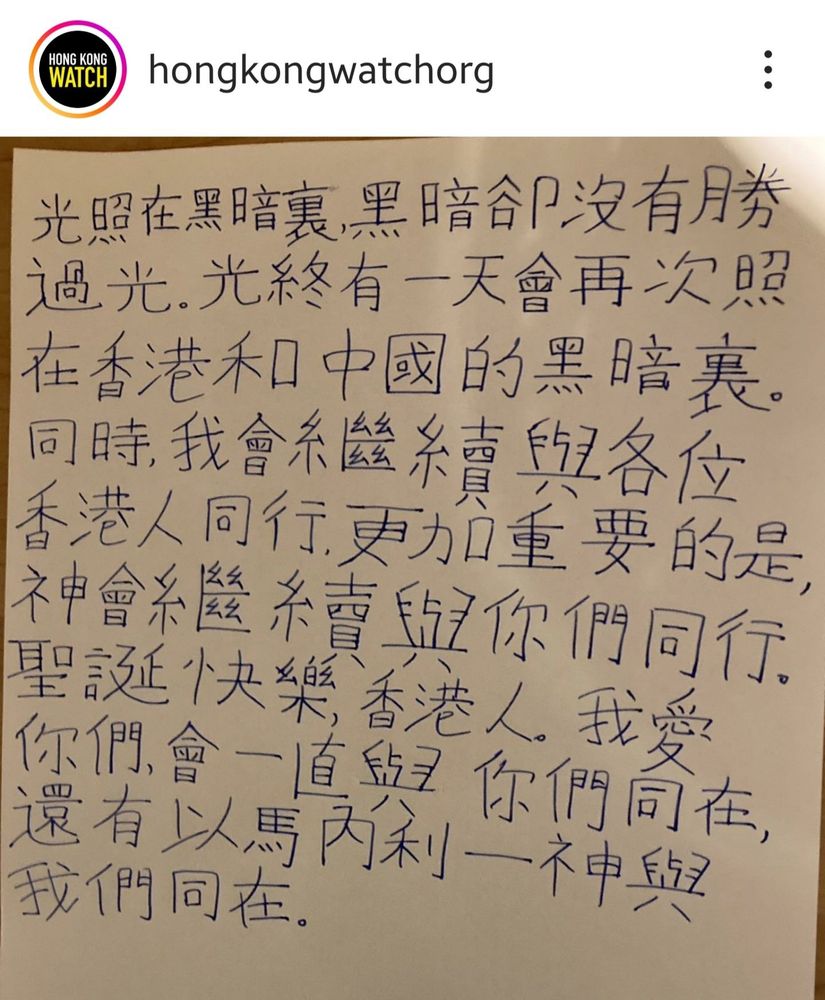 HONG KONG
WATCH
hongkongwatchorg
光照在黑暗裏,黑暗卻沒有勝
過光。光終有一天會再次照
在香港和中國的黑暗裏。
同時,我會繼續與各位
香港人同行,更加重要的是,
神會繼續與你們同行。
聖誕快樂,香港人。我愛
你們,會一直與你們同在,
還有以馬內利一神與
我們同在。